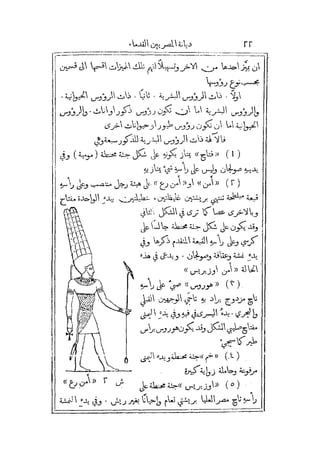 ٢٢ ديانة المصريين القدماء
ان يميّز احدها من الآخر وتسهيلاً لفهم تلك المميزات اقسمها الى قسمين
بحسب نوع رؤوسها
اولاً. ذات الرؤوس البشرية. ثانياً. ذات الرؤوس الحيوانية.
والرؤوس البشرية اما ان تكون رؤوس ذكور او اناث. والرؤوس
الحيوانية اما ان تكون رؤوس طيور او حيوانات اخرى
فالآلهة ذات الرؤوس البشرية للذكور سبعة وهي
(١) «فتاح» يمتاز بكونه على شكل جثة محنطة (مومية) وفي
يديه صولجان وليس على رأسه شيء يمتاز به
(٢) «أمن» او «أمن رع» على هيئة رجل منتصب وعلى رأسه
قبعة مسطحة تنتهي بريشتين غليظتين مستطيلتين بيده الواحدة مفتاح
وبالاخرى عصا كما ترى في الشكل الثاني
وقد يكون على شكل جثة محنطة جالسًا على
كرسي وعلى رأسه القبعة المتقدم ذكرها وفي
يده منشة وعقافة وصولجان. ويدعى في هذه
الحالة «أمن اوزيريس»
(٣) «هوروس» صبي على رأسه
تاج مزدوج يراد به تاجي الوجهين القبلي
والبحري. يده اليسرى في فيه وفي يده اليمنى
مفتاح صليبي الشكل وقد يكون هوروس برأس
طير كما سيجيء
(٤) «خم» جثة محنطة ويده اليمنى
مرفوعة وحاملة زاوية كبيرة
(٥) «اوزيريس» جثة محنطة على
ش ٢ «أمن رع»
رأسه تاج مصر العليا بريشتي نعام واحيانًا بغير ريش. وفي يده المنشة